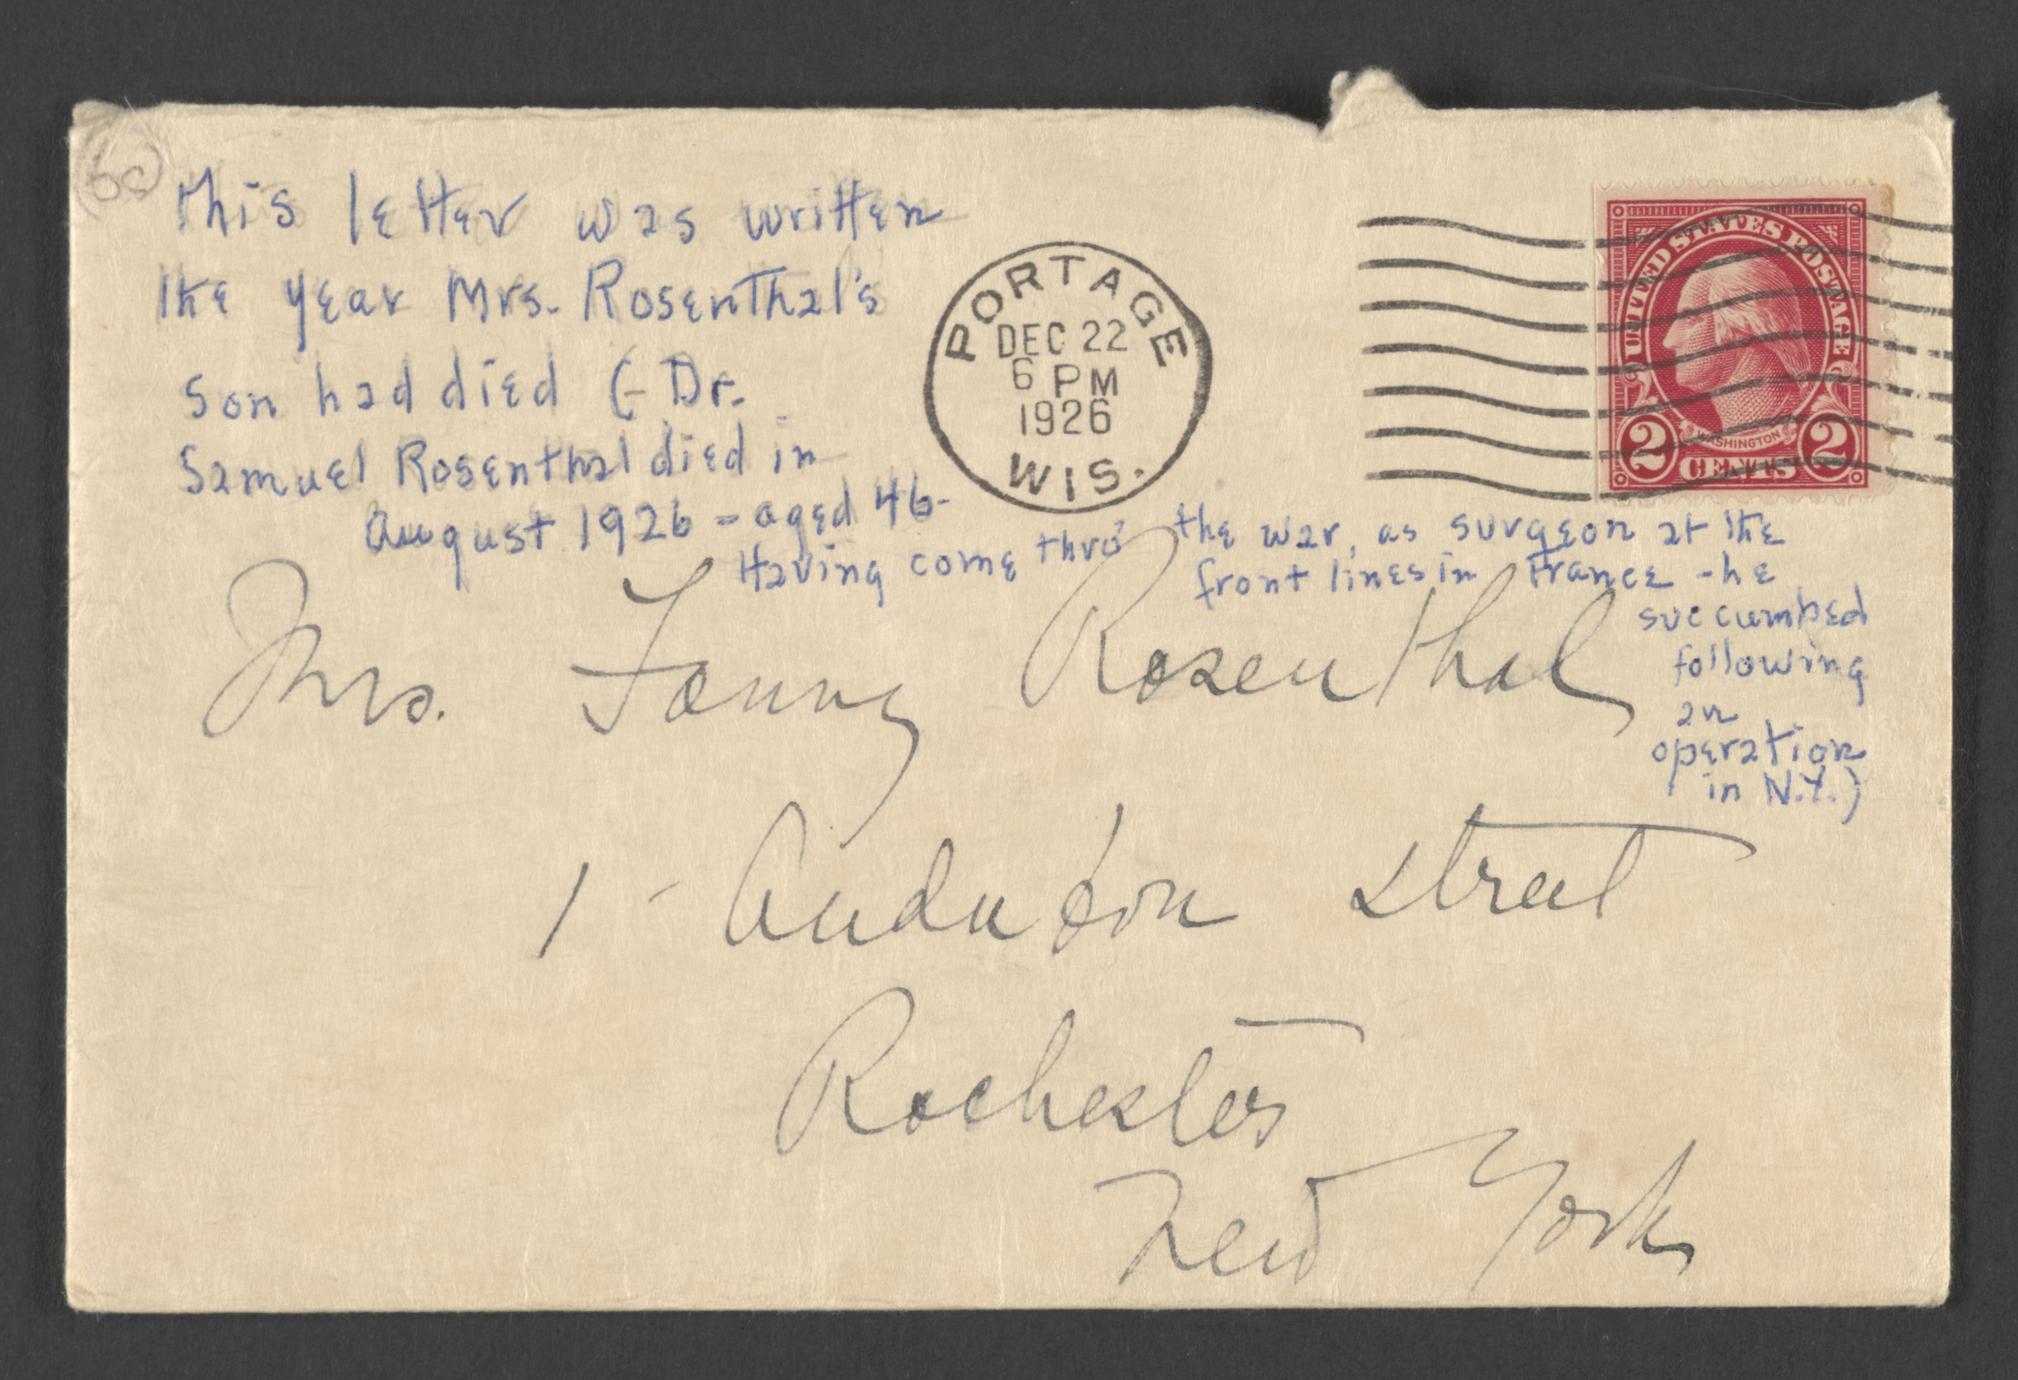 This letter was written
the year Mrs. Rosenthal's
son had died (- Dr.
Samuel Rosenthal died in
August 1926 - aged 46-
Having come thro' the war, as surgeon at the
front lines in France - he
succumbed
following
an
operation
in N.Y.)
PORTAGE
DEC 22
6 PM
1926
WIS.
UNITED STATES POSTAGE
WASHINGTON
2 CENTS 2
Mrs. Fanny Rosenthal
1 - Audubon Street
Rochester
New York